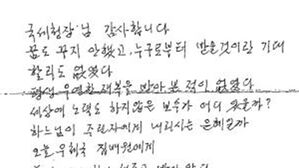 국세청장님 감사합니다
꿈도 꾸지 안했고, 누구로부터 받을것이란 기대
할리도 없였다
평생 우연한 재복을 받아 본 적이 없였다
세상에 노력도 하지않은 보수가 어디 있을까?
하느님이 주린자에게 내리시는 은혜일까
오늘 우체국 집배원에게